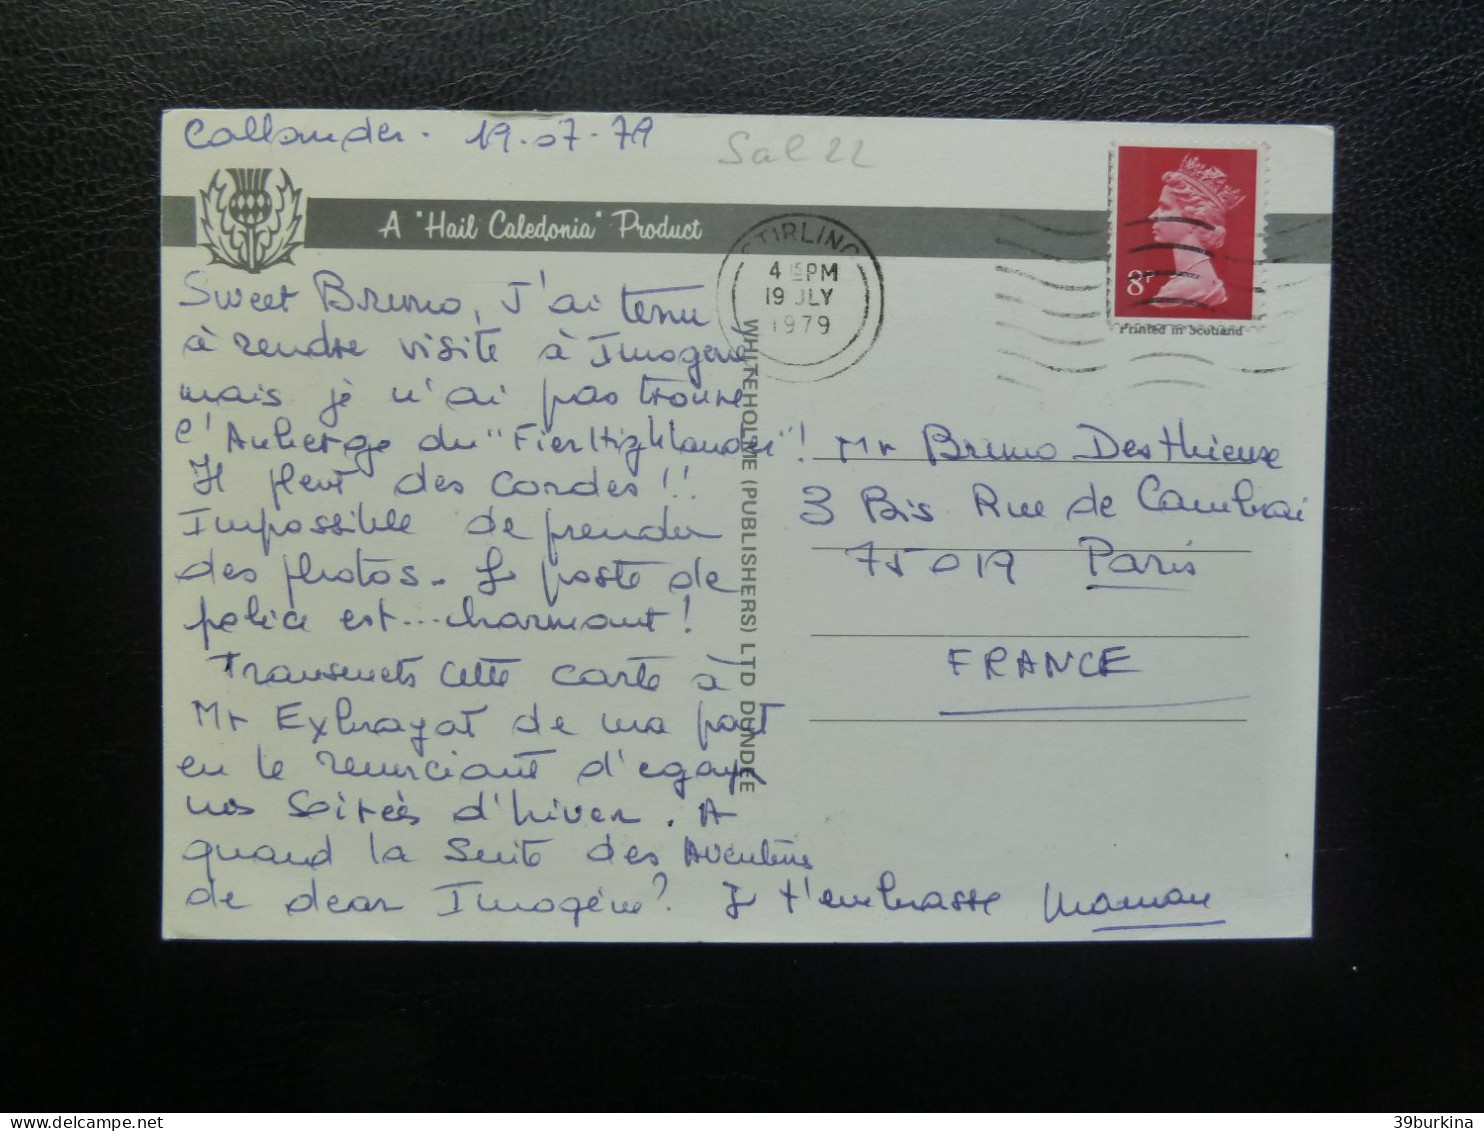 Callander. 19.07.79
Sal 22
A "Hail Caledonia" Product
STIRLING
4 15 PM
19 JLY
1979
8P
Printed in Scotland
Sweet Bruno, J'ai tenu
à rendre visite à Imogène
mais je n'ai pas trouvé
l'Auberge du "Fier Highlander"!
Il pleut des cordes!!
Impossible de prendre
des photos. Le poste de
police est... charmant!
Transmets cette carte à
Mr Exbrayat de ma part
en le remerciant d'égayer
nos soirées d'hiver. A
quand la suite des Aventures
de dear Imogène? Je t'embrasse Maman
WHITEHOLME (PUBLISHERS) LTD DUNDEE
Mr Bruno Desthieux
3 Bis Rue de Cambrai
75019 Paris
FRANCE
39burkina